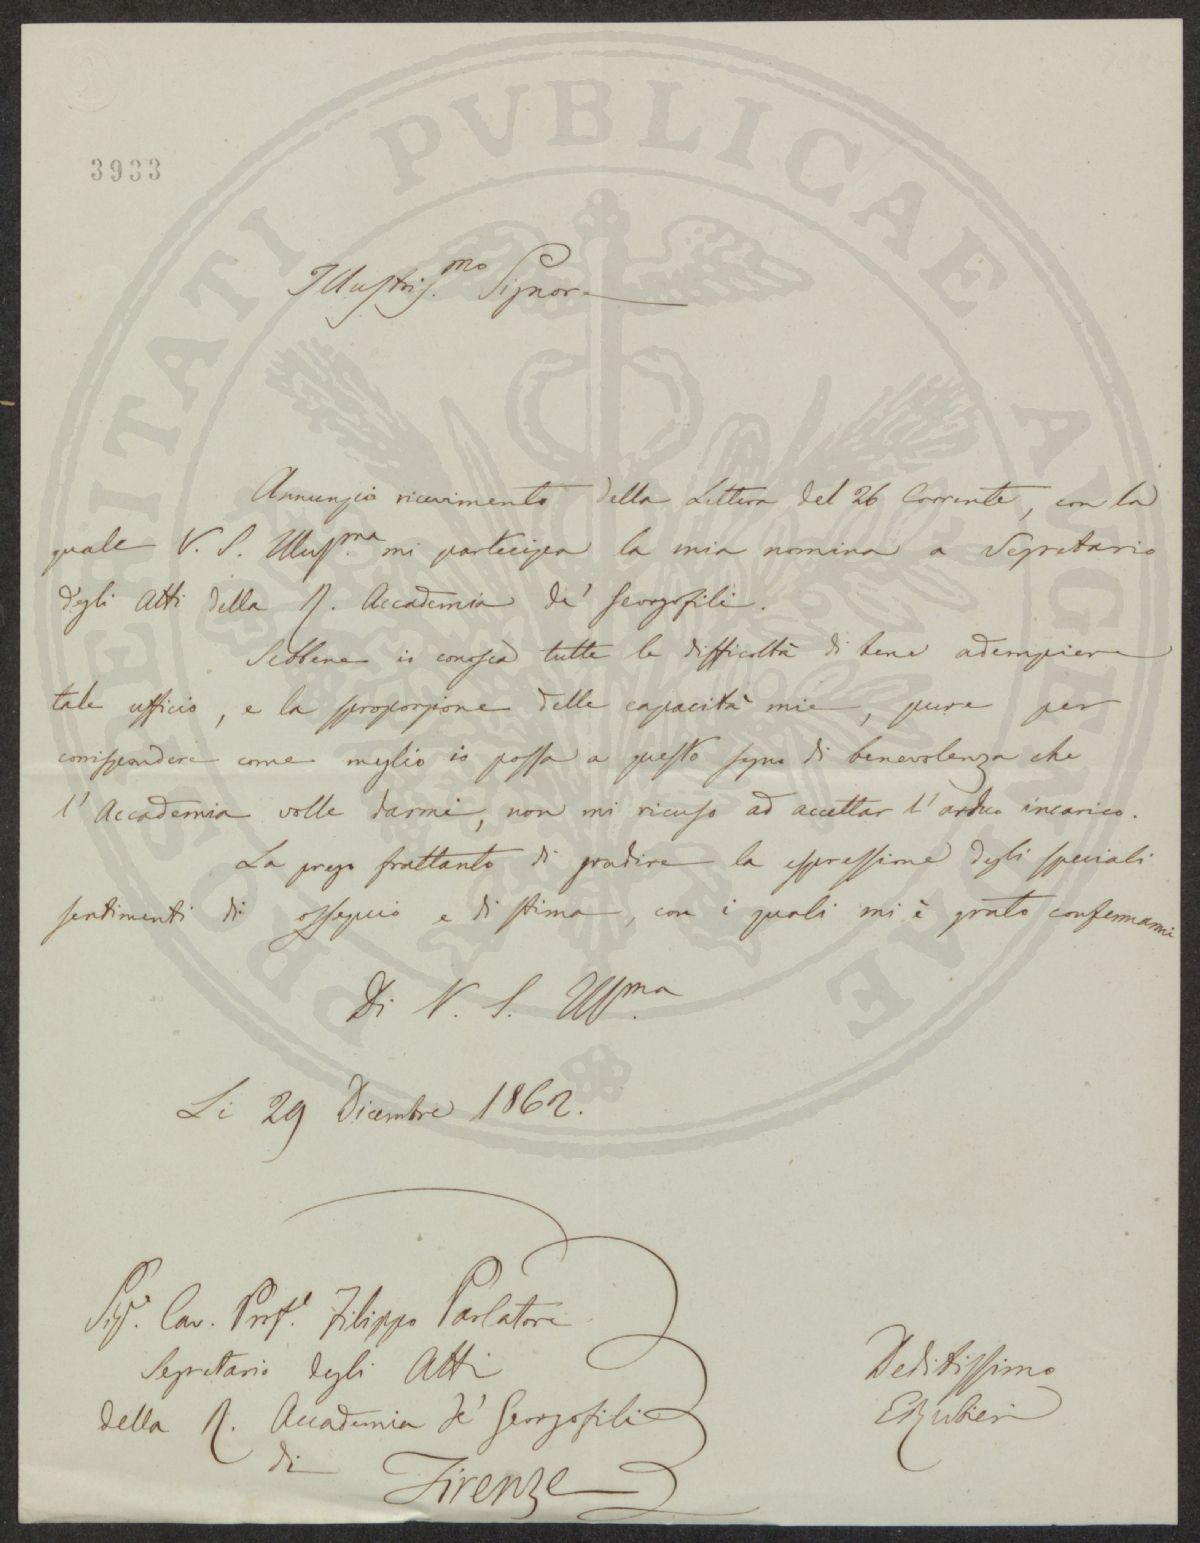 PROSPERITATI PVBLICAE AVGENDAE
3933
Illustris.mo Signore
Annunzio ricevimento della Lettera del 26 Corrente, con la
quale V. S. Illus.ma mi partecipa la mia nomina a Segretario
degli Atti della R. Accademia de' Georgofili.
Sebbene io conosca tutte le difficoltà di bene adempiere
tale ufficio, e la sproporzione delle capacità mie, pure per
corrispondere come meglio io possa a questo segno di benevolenza che
l'Accademia volle darmi, non mi ricuso ad accettar l'arduo incarico.
La prego frattanto di gradire la espressione degli speciali
sentimenti di ossequio e di stima, con i quali mi è grato confermarmi
Di V. S. Ill.ma
Li 29 Dicembre 1862.
Sig.e Cav. Prof.e Filippo Parlatore
Segretario degli Atti
della R. Accademia de' Georgofili
di Firenze
Deditissimo
E Rubieri